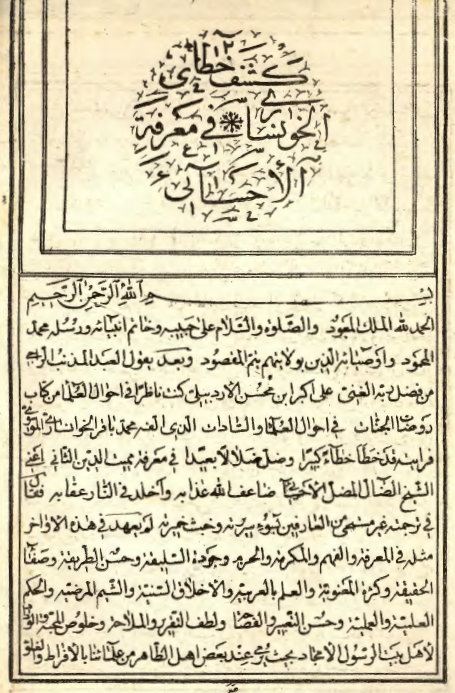 كشف خطاى
الخونسارى فى معرفة
الأحسائى
بسم الله الرحمن الرحيم
الحمد لله الملك المعبود والصلوة والسلام على حبيبه وخاتم انبيائه ورسله محمد
المحمود واوصيائه الذين بولايتهم يتم المقصود وبعد يقول العبد المذنب الراجى
من فضل ربه الغنى على اكبر ابن محسن الاردبيلى كنت ناظرا فى احوال العلماء من كتاب
روضات الجنات فى احوال العلماء والسادات الذى الفه محمد باقر الخوانسارى
فرايته قد خطا خطاء كبيرا وضل ضلالا بعيدا فى معرفة مميت الدين الثانى اعنى
الشيخ الضال المضل الاحسائى ضاعف الله عذابه واخلد فى النار عقابه فقال
فى ترجمته غير مستحى من العارفين بسوء سيرته وخبث خميرته لم يعهد فى هذه الاواخر
مثله فى المعرفة والفهم والمكرمة والحزم وجودة السليقة وحسن الطريقة وصفاء
الحقيقة وكثرة المعنوية والعلم بالعربية والاخلاق السنية والشيم المرضية والحكم
العلمية والعملية وحسن التعبير والفصاحة ولطف التقرير والملاحة وخلوص المحبة والوداد
لاهل بيت الرسول الامجاد بحيث يرمى عند بعض اهل الظاهر من علمائنا بالافراط والغلو